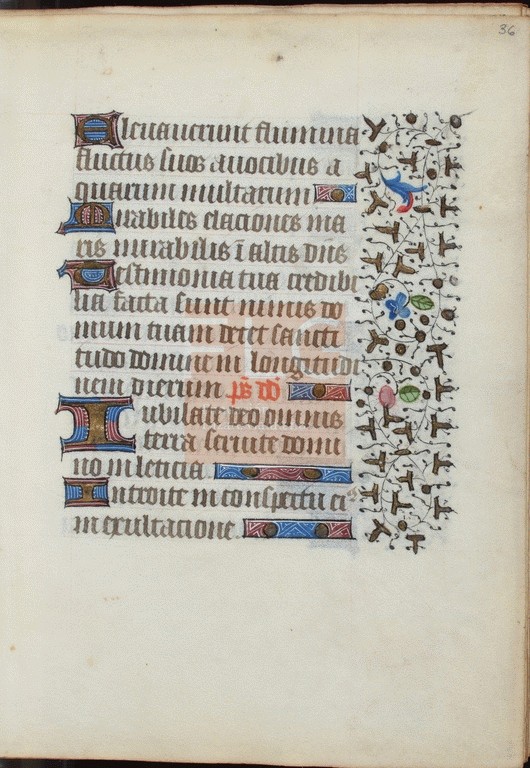 36
Eleuauerunt flumina
fluctus suos a uocibus a
quarum multarum
Mirabiles elaciones ma
ris mirabilis ī altis dn̄s
Testimonia tua credibi
lia facta sunt nimis do
mum tuam decet sancti
tudo domine in longitudi
nem dierum p̄s dd̄
Iubilate deo omnis
terra seruite domi
no in leticia
Introite in conspectu ei⁹
in exultacione